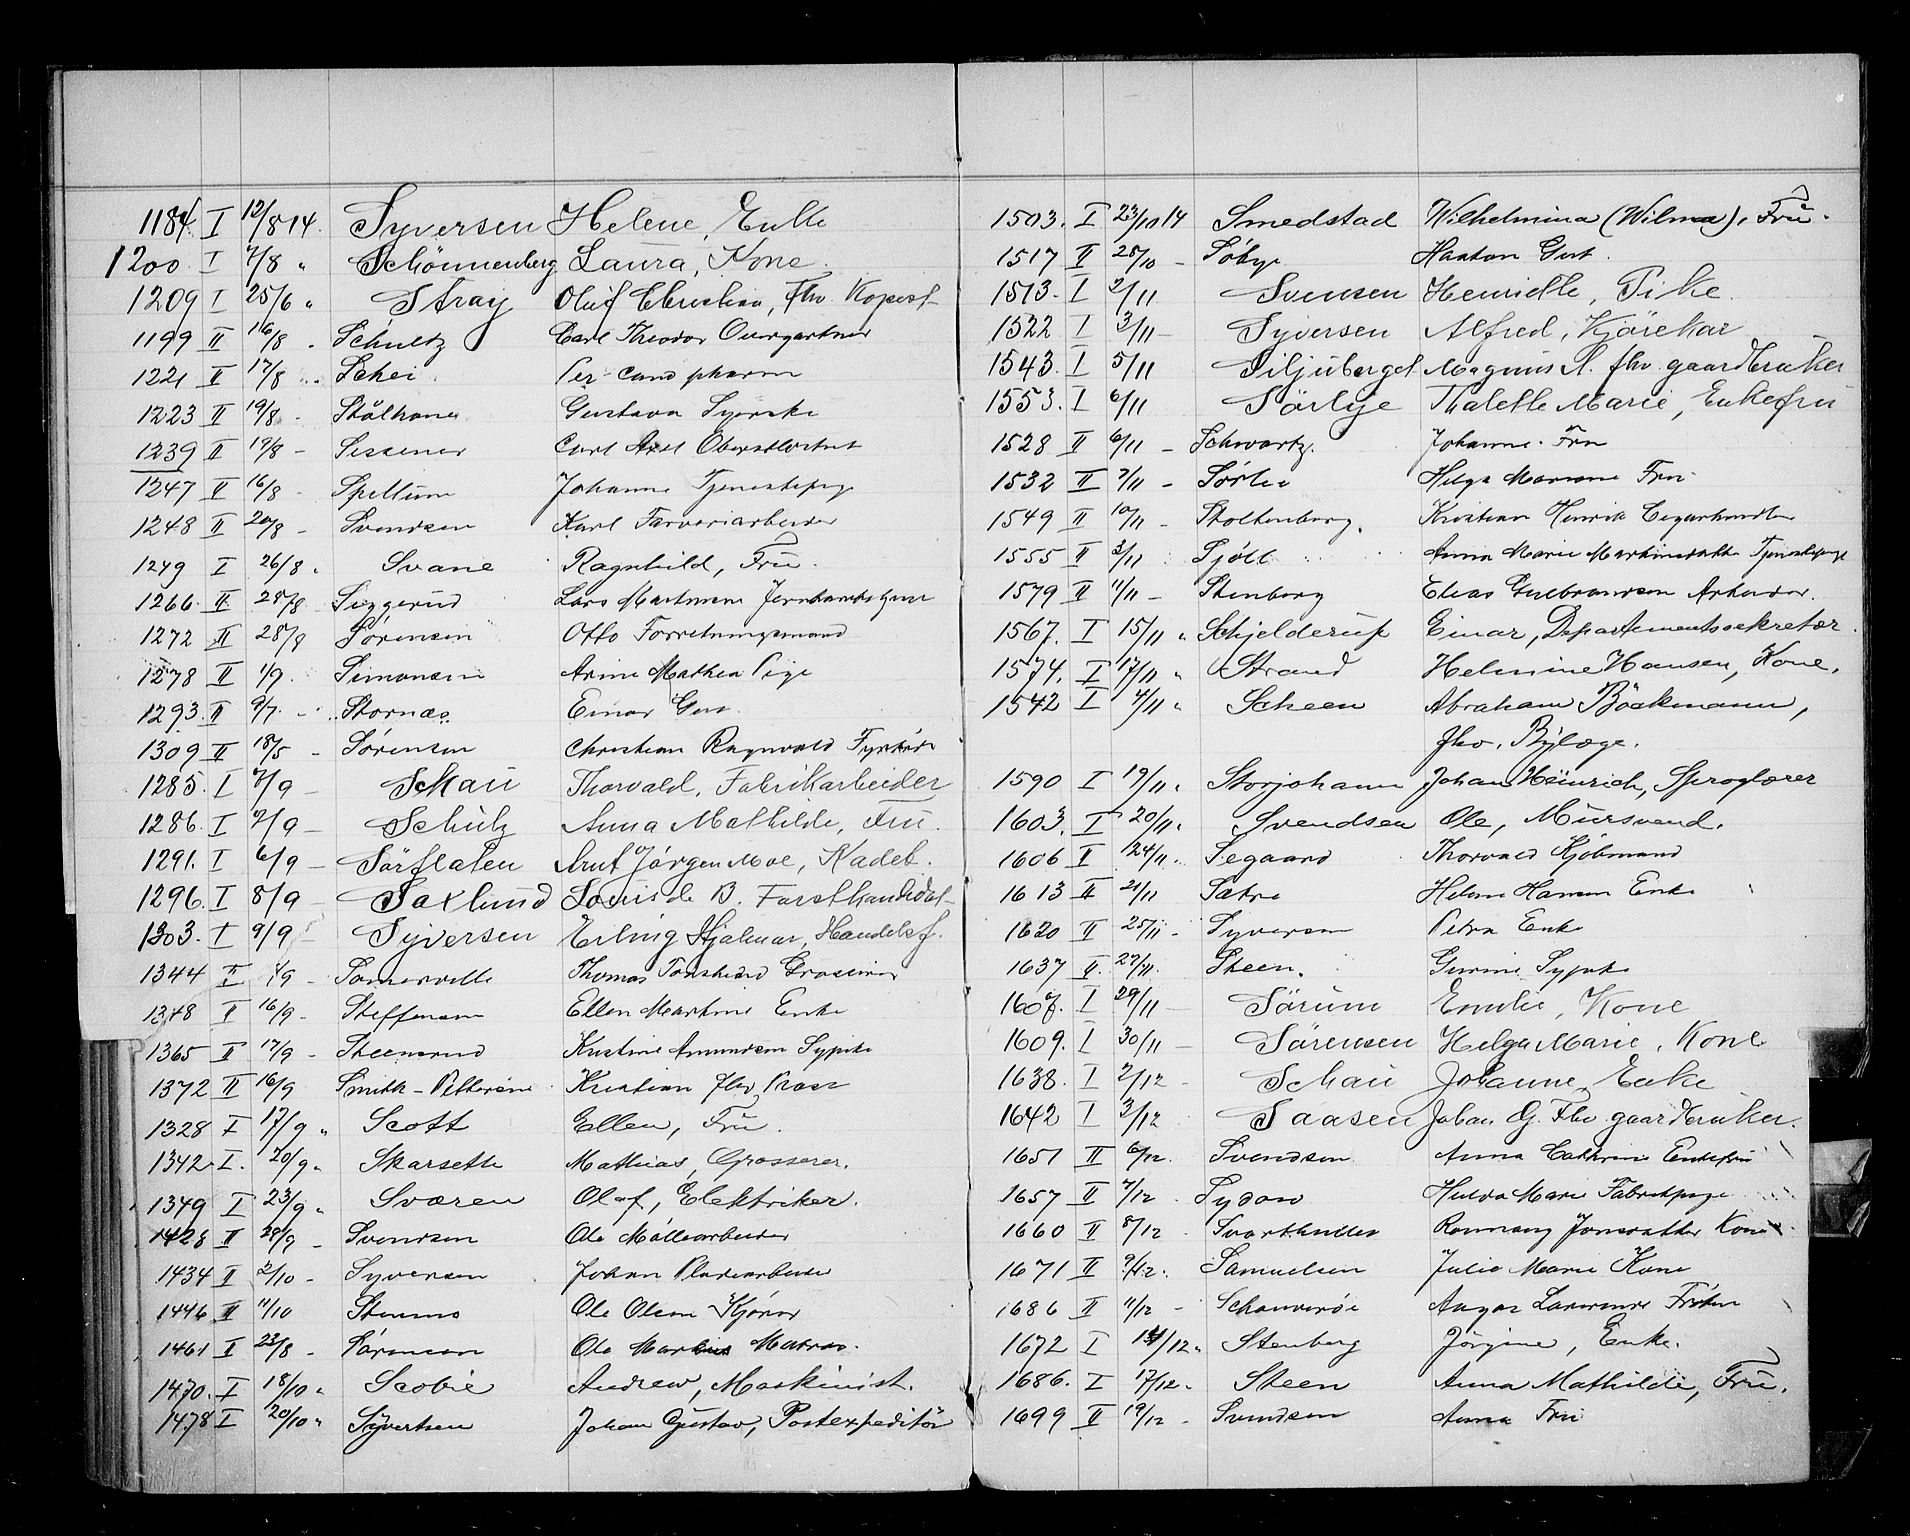 1184 I 12/8 14. Syversen Helene, Enke
1200 I 7/8 " Schönnenberg Laura, Kone.
1209 I 25/6 " Stray Oluf Christian, fhv.
1199 II 16/8 " Schultz Carl Theodor Overgartner
1221 II 17/8 " Schei Per cand pharm
1223 II 19/8 - Stålhane Gustava Syerske
1239 II 19/8 - Sissener Carl Axel Oberstløitnt
1247 II 16/8 - Spillum Johanne Tjenestepige
1248 II 20/8 - Svendsen Karl Farveriarbeider
1249 I 26/8 " Svane Ragnhild, Fru.
1266 II 28/8 Siggerud Lars Martinsen
1272 II 28/8 Sørensen Otto Forretningsmand
1278 II 1/9 - Simonsen Anne Mathea Pige
1293 II 9/7 - Stornæs Einar Gut
1309 II 18/5 - Sørensen Christian Ragnvald Fyrbøder
1285. I 7/9 - Schau Thorvald, Fabrikarbeider
1286. I 7/9 - Schulz Anna Mathilde, Fru.
1291. I 6/9 - Sörflaten Arnt Jörgen Moe, Kadet.
1296. I 8/9 - Saxlund Louis de B. Forstkandidat
1303. I 9/9 - Syversen Erling Hjalmar, Handelsf.
1344 II 7/9 - Somerville Thomas Grosserer
1348 II 16/9 - Steffensen Ellen Martine Enke
1365 II 17/9 - Steensrud Kristine Amundsen Sypike
1372 II 16/9 Smith-Pettersen Kristian fhv Prost
1328 I 17/9 " Scott Ellen, Fru.
1342 I. 20/9 " Skarseth Mathias, Grosserer.
1349 I 23/9 " Sværen Olaf, Elektriker.
1428 II 28/9 - Svendsen Ole Møllearbeider
1434 II 2/10 - Syversen Johan Pladearbeider
1446 II 11/10 Stenmo Ole Olsen Kjører
1461 II 23/8 - Sörensen Ole Markus Matros.
1470. I 18/10 " Scobie Andrew, Maskinist.
1478 I 20/10 " Syvertsen Johan Gustav, Postexpeditör
1503. I 23/10 14 Smedstad Wilhelmina (Wilma), Fru.
1517 II 28/10 - Søbye Haakon Gut.
1513. I 2/11 Svensen Henriette, Pike.
1522 I 3/11 - Syversen Alfred, Kjörekar
1543. I 5/11 Siljuberget Magnus A. fhv. gaardbruker
1553. I 6/11 Sörlye Thalette Marie, Enkefru
1528 II 6/11 - Schwartz. Johanne. Fru
1532 II 7/11 - Sørlie Helga Mariane Fru
1549 II 10/11 - Stoltenberg. Kristian Henrik Cigarhandler
1555 II 3/11 Sjøli Anna Marie Martinsdatter Tjenestepige
1579 II 11/11 - Stenberg Elias Gulbrandsen Arbeider.
1567. I 15/11 " Schjelderup Einar, Departementssekretær.
1574. I 17/11 " Strand Helmine Hansen, Kone.
1542 I 4/11 " Scheen Abraham Böckmann,
fhv. Bylæge.
1590 I 19/11 " Storjohann Johan Heinrich, Sproglærer
1603. I 20/11 " Svendsen Ole, Mursvend.
1606 II 24/11 " Segaard Thorvald Kjøbmand
1613 II 21/11 Sætre Helene Hansen Enke
1620 II 25/11 - Syversen Petra Enke
1637 II 27/11 Steen. Gurine Sypike
1607. I 29/11 Sörum Emilie, Kone
1609. I 30/11 - Sörensen Helga Marie, Kone
1638. I 2/12 - Schau Johanne, Enke
1642 I 3/12 Saasen Johan G. Fhv gaardbruker.
1651 II 6/12. Svendsen Anna Cathrine Enkefru
1657 II 7/12 - Sydow Hulda Marie Fabrikpige
1660 II 8/12 Svarthullet Ronnaug Jonsdatter Kone
1671 II 9/12. Samuelsen Julie Marie Kone
1686 II 11/12 - Schanverøe Aagot Lavinense Frøken
1672 I 14/12 " Stenberg Jörgine, Enke.
1686. I 17/12 " Steen Anna Mathilde, Fru.
1699 II 19/12 - Svendsen Anna Fru